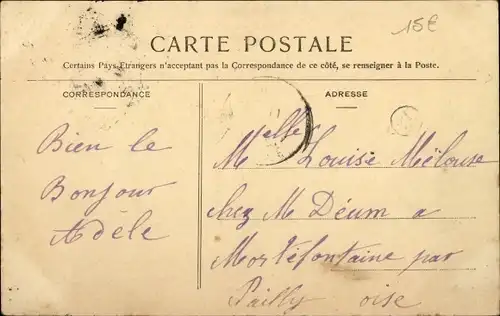 15€
CARTE POSTALE
Certains Pays Etrangers n'acceptant pas la Correspondance de ce côté, se renseigner à la Poste.
CORRESPONDANCE
ADRESSE
Bien le
Bonjour
Adèle
Melle Louise Mélouse
chez M Déum a
Mortéfontaine par
Pailly oise